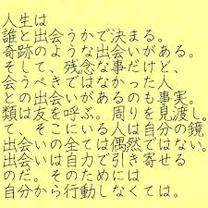 人生は
誰と出会うかで決まる。
奇跡のような出会いがある。
そして、残念な事だけど、
会うべきではなかった人
との出会いがあるのも事実。
類は友を呼ぶ。周りを見渡し
て、そこにいる人は自分の鏡
出会いの全ては偶然ではない。
出会いは自力で引き寄せる
のだ。そのためには
自分から行動しなくては。